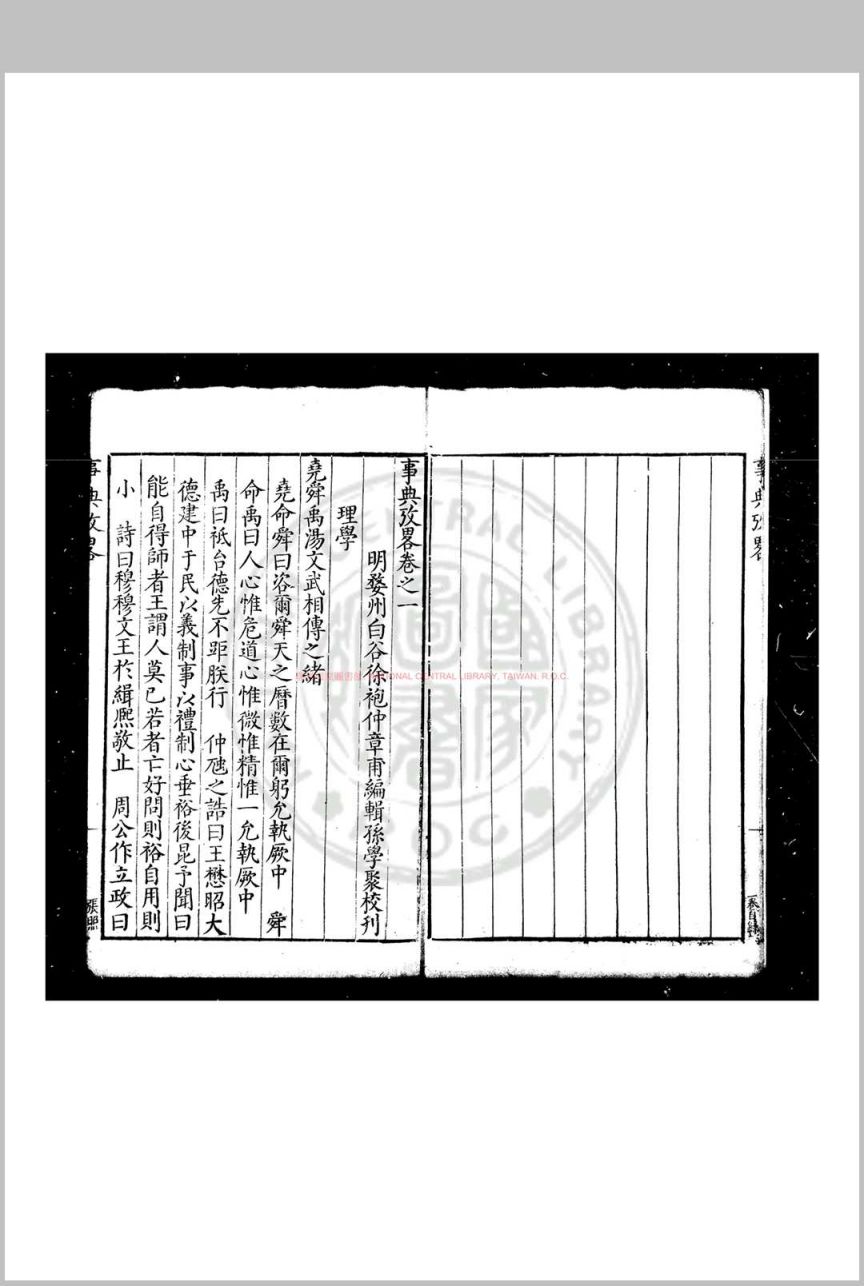 事典攷畧
事典攷畧卷之一
明婺州白谷徐袍仲章甫編輯孫學聚校刋
理學
堯舜禹湯文武相傳之緒
堯命舜曰咨爾舜天之曆數在爾躬允執厥中　舜
命禹曰人心惟危道心惟微惟精惟一允執厥中
禹曰祗台德先不距朕行　仲虺之誥曰王懋昭大
德建中于民以義制事以禮制心垂裕後昆予聞曰
能自得師者王謂人莫已若者亡好問則裕自用則
小　詩曰穆穆文王於緝熈敬止　周公作立政曰
事典攷畧
NATIONAL CENTRAL LIBRARY, TAIWAN, R.O.C.